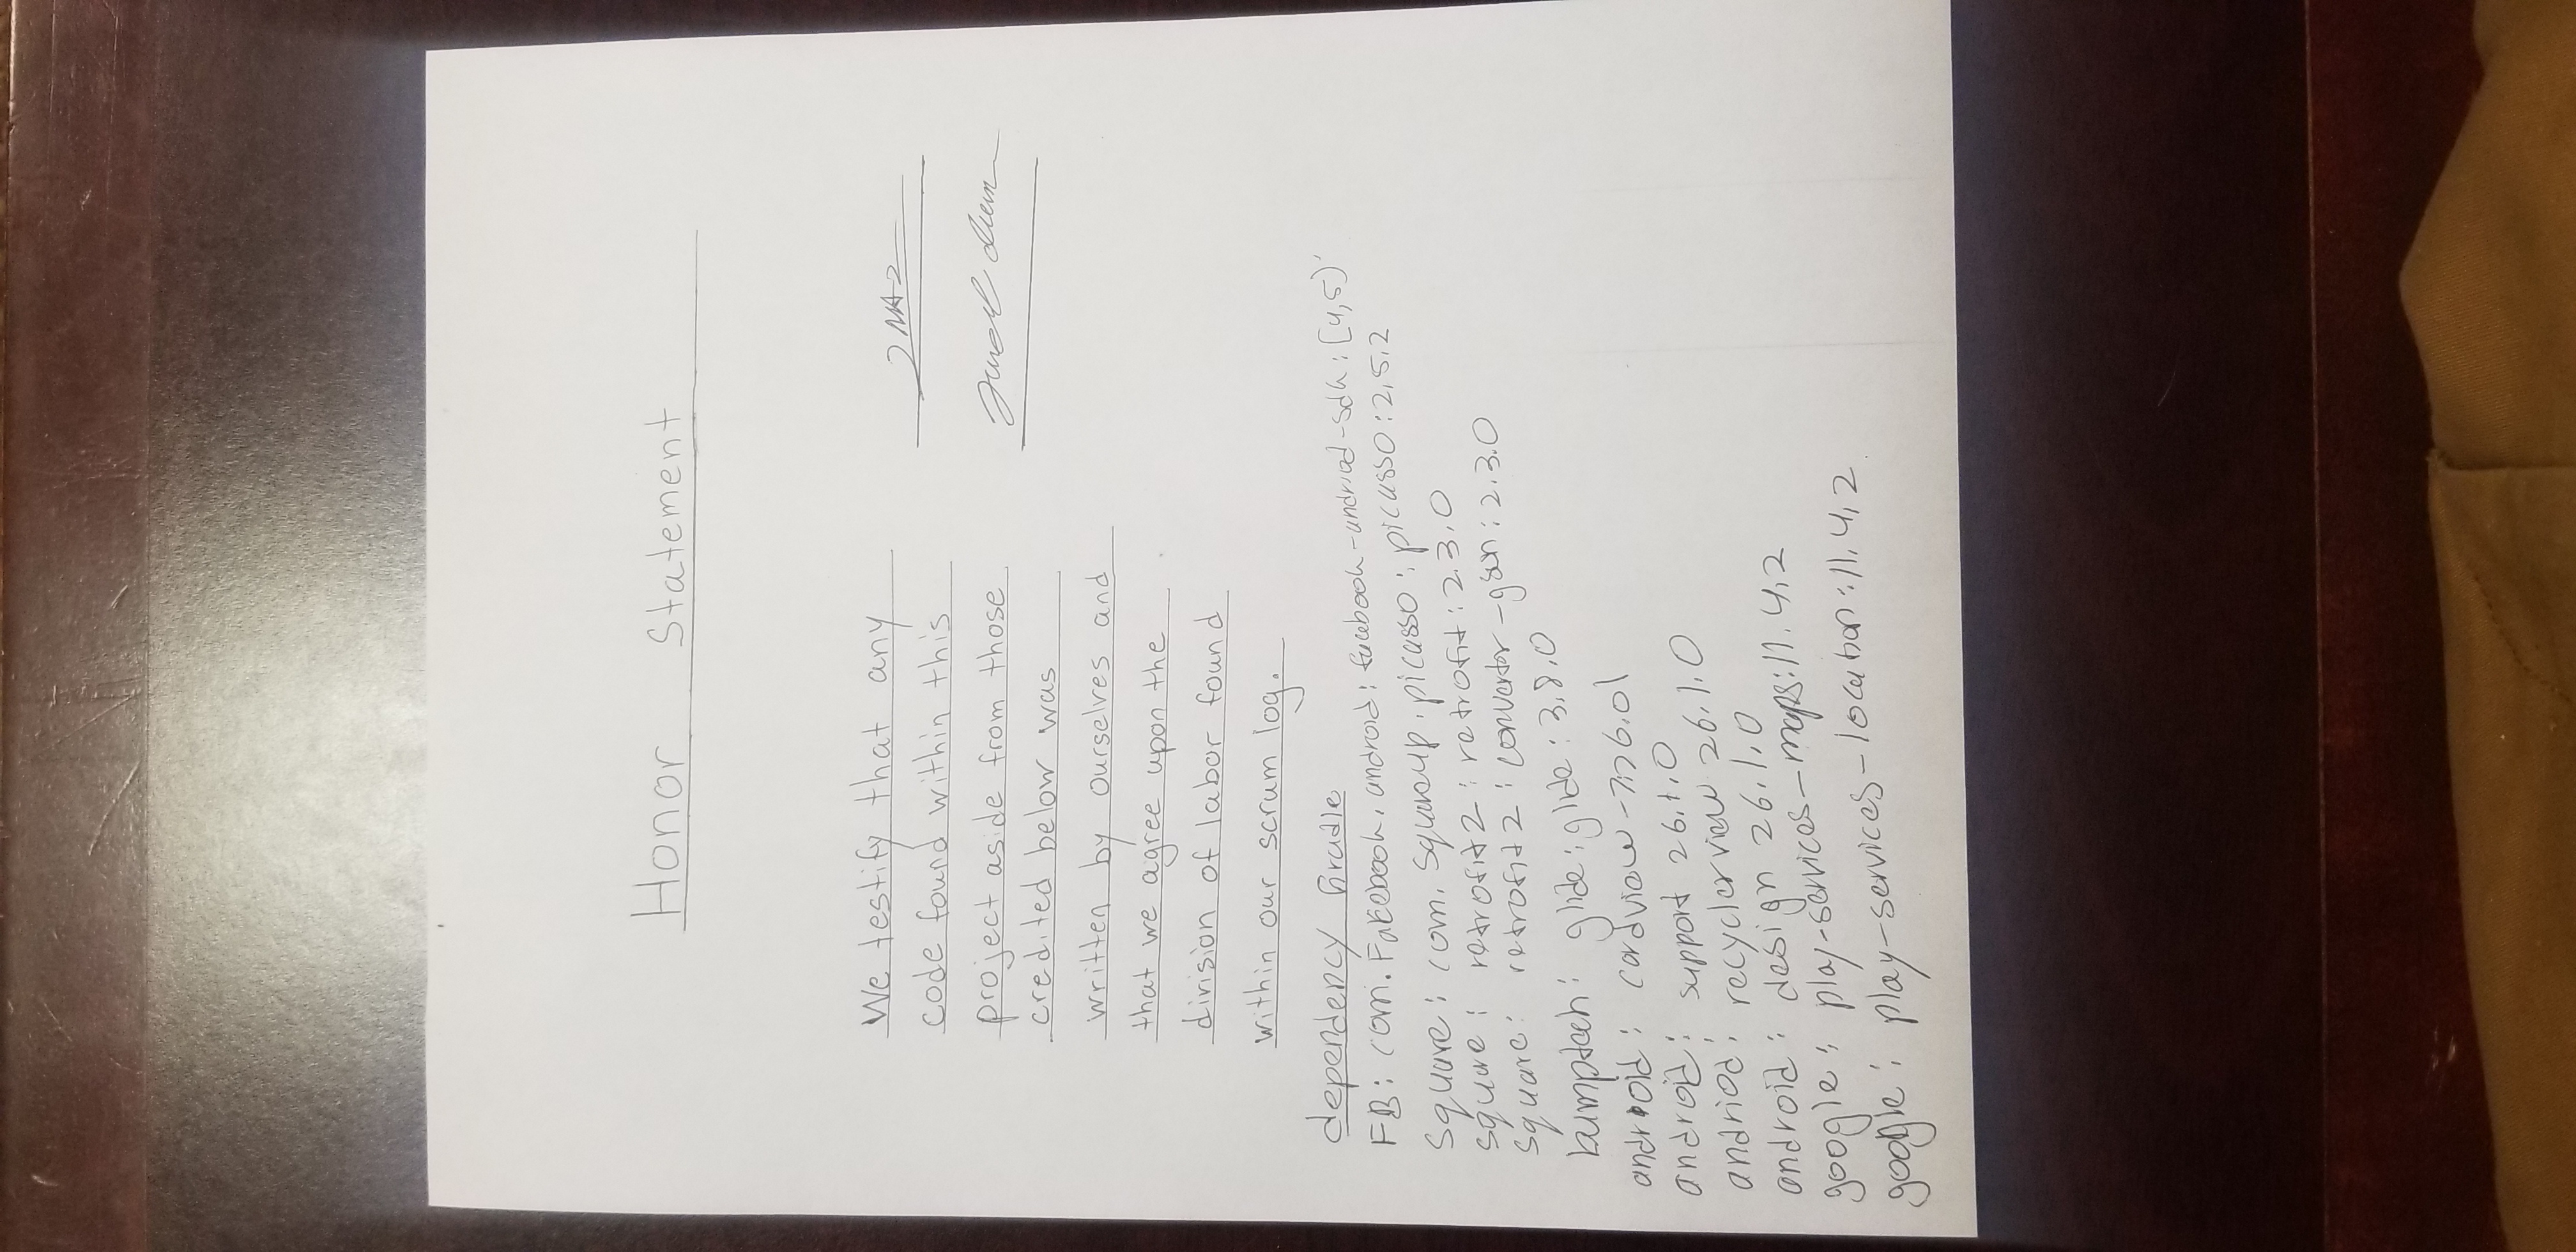 Honor Statement
We testify that any
code found within this
project aside from those
credited below was
written by ourselves and
that we agree upon the
division of labor found
within our scrum log.
dependency Gradle
FB: com. Facebook. android: facebook-andriod-sdk: [4,5)'
Square: com. squareup. picasso: picasso: 2.5.2
square: retrofit2: retrofit: 2.3.0
Square: retrofit2: convertor-gson: 2.3.0
bumptech: glide: glide: 3.8.0
android: cardview-
android: support 26.1.0
andriod: recyclerview 26.1.0
android: design 26.1.0
google: play-services-maps: 11.4.2
google: play-services-location: 11.4.2